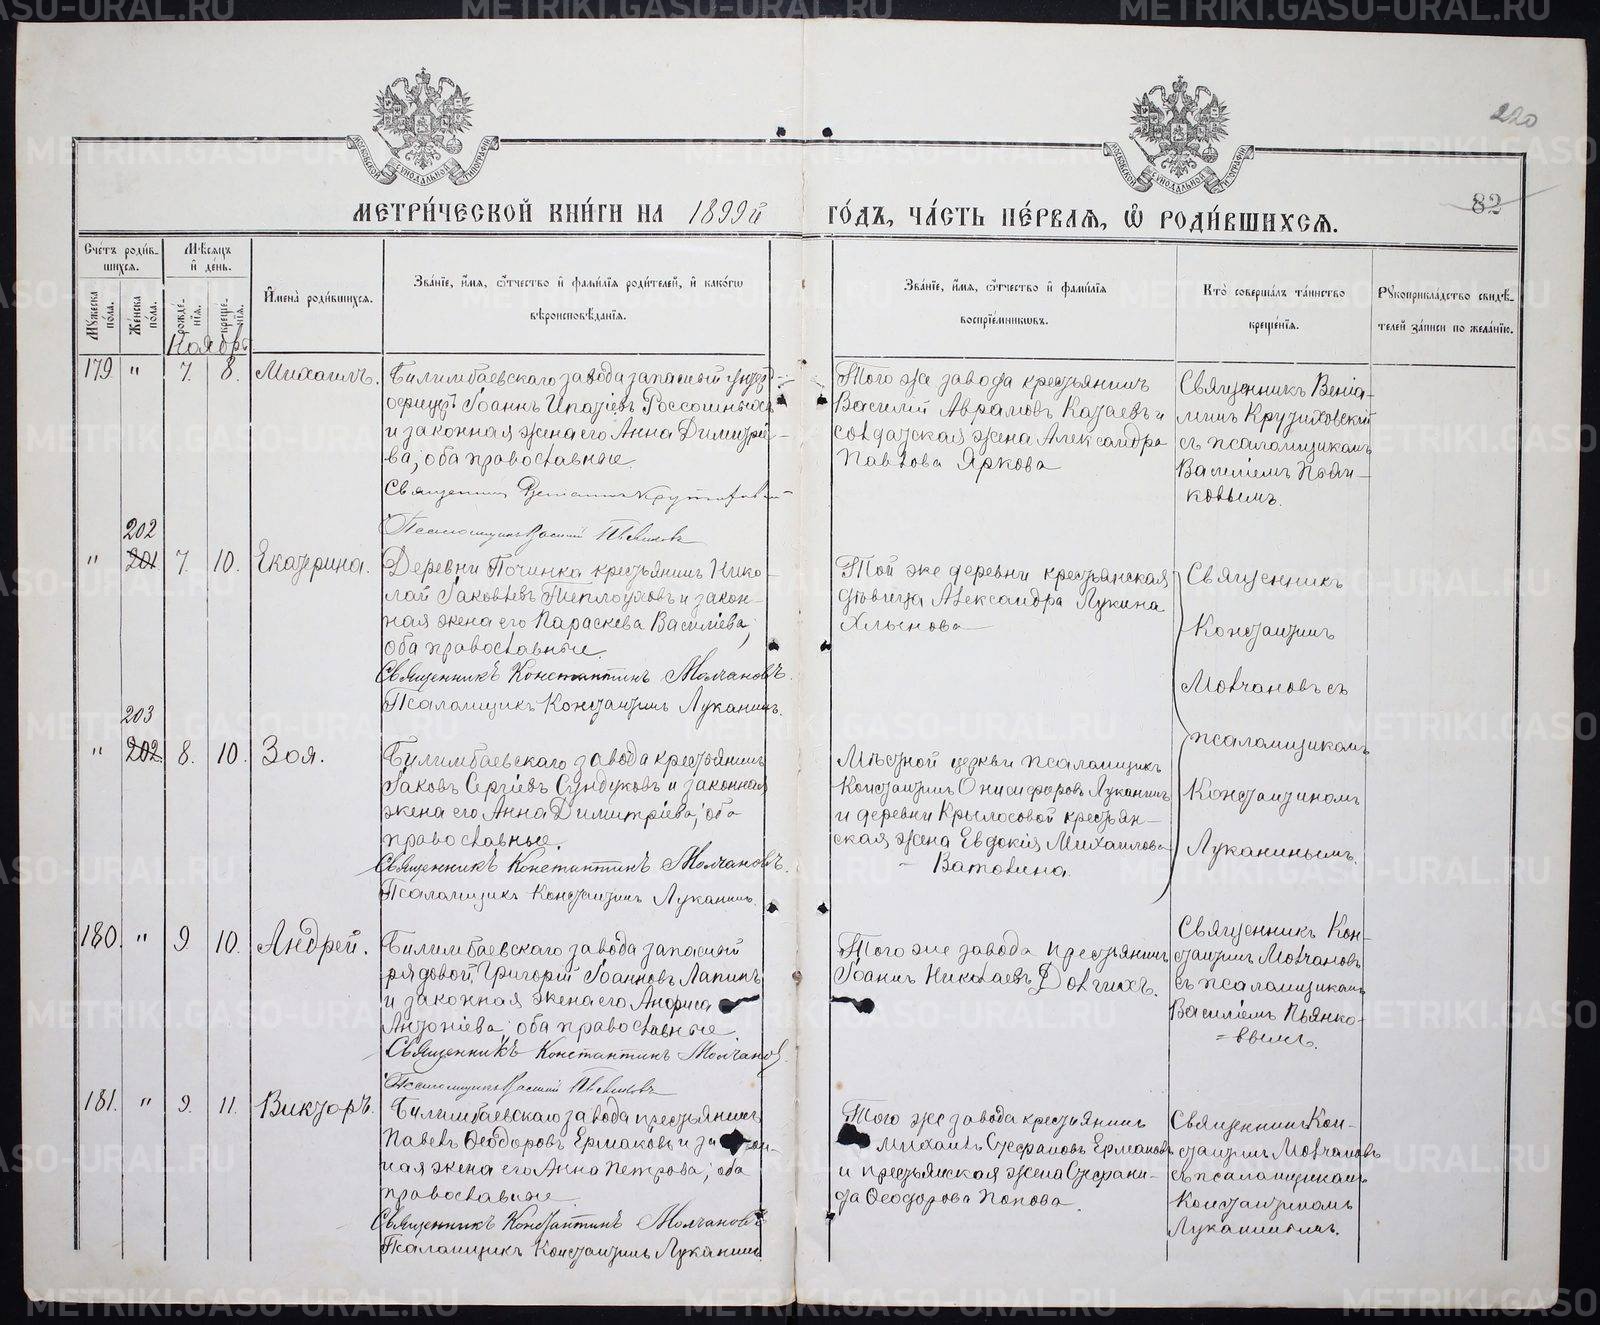 220
82
МЕТРИ́ЧЕСКОЙ КНИ́ГИ НА 1899й ГО́ДЪ, ЧА́СТЬ ПЕ́РВАѦ, Ѡ РОДИ́ВШИХСѦ.
Счётъ роди́вшихсѧ.
Мꙋжеска по́ла.
Же́нска по́ла.
Мѣсѧцъ и де́нь.
рожде́нїѧ.
креще́нїѧ.
И҆мена̀ роди́вшихсѧ.
Зва́нїе, и҆́мѧ, ѻ҆́тчество и҆ фами́лїѧ роди́телей, и҆ како́гѡ
вѣроисповѣ́данїѧ.
Зва́нїе, и҆́мѧ, ѻ҆́тчество и҆ фами́лїѧ
воспрїе́мникѡвъ.
Кто̀ соверша́лъ та́инство
креще́нїѧ.
Рꙋкоприкла́дство свидѣ́-
телей за́писи по жела́нїю.
Ноябрь
179 " 7. 8. Михаилъ.
Билимбаевскаго завода запасный унтер
офицер Іоаннъ Ипатіевъ Россошныхъ
и законная жена его Анна Димитріе-
ва; оба православные.
Священникъ
Псаломщикъ Василій
Того же завода крестьянинъ
Василій Аврамовъ Казаевъ и
солдатская жена Александра
Павлова Яркова
Священникъ Веніа-
минъ
съ псаломщикомъ
Василіемъ Пьян-
ковымъ.
202
" 201 7. 10. Екатерина.
Деревни Починка крестьянинъ Нико-
лай Іаковлевъ Теплоуховъ и закон-
ная жена его Параскева Василіева;
оба православные.
Священникъ Константинъ Молчановъ.
Псаломщикъ Константинъ Луканинъ.
Той же деревни крестьянская
дѣвица Александра Лукина
Хлынова
Священникъ
Константинъ
Молчановъ съ
псаломщикомъ
Константиномъ
Луканинымъ.
203
" 202 8. 10. Зоя.
Билимбаевскаго завода крестьянинъ
Іаковъ Сергіевъ Сундуковъ и законная
жена его Анна Димитріева; оба
православные.
Священникъ Константинъ Молчановъ.
Псаломщикъ Константинъ Луканинъ.
Мѣстной церкви псаломщикъ
Константинъ Онисифоровъ Луканинъ
и деревни Крылосовой крестьян-
ская жена Евдокія Михаилова
Ватолина.
180. " 9 10. Андрей.
Билимбаевскаго завода запасный
рядовой, Григорій Іоанновъ Лапинъ
и законная жена его Анфиса
Антоніева; оба православные
Священникъ Константинъ Молчанов.
Псаломщикъ Василій
Того же завода крестьянинъ
Іоаннъ Николаевъ Долгихъ.
Священникъ Кон-
стантинъ Молчановъ
съ псаломщикомъ
Василіемъ Пьянко-
=вымъ.
181. " 9. 11. Викторъ.
Билимбаевскаго завода крестьянинъ
Павелъ Ѳеодоровъ Ермаковъ и закон-
ная жена его Анна Петрова; оба
православные
Священникъ Константинъ Молчановъ
Псаломщикъ Константинъ Луканинъ
Того же завода крестьянинъ
Михаилъ Стефановъ Ермаковъ
и крестьянская жена Стефани-
да Ѳеодорова Попова.
Священникъ Кон-
стантинъ Молчановъ
съ псаломщикомъ
Константиномъ
Луканинымъ.
METRIKI.GASO-URAL.RU